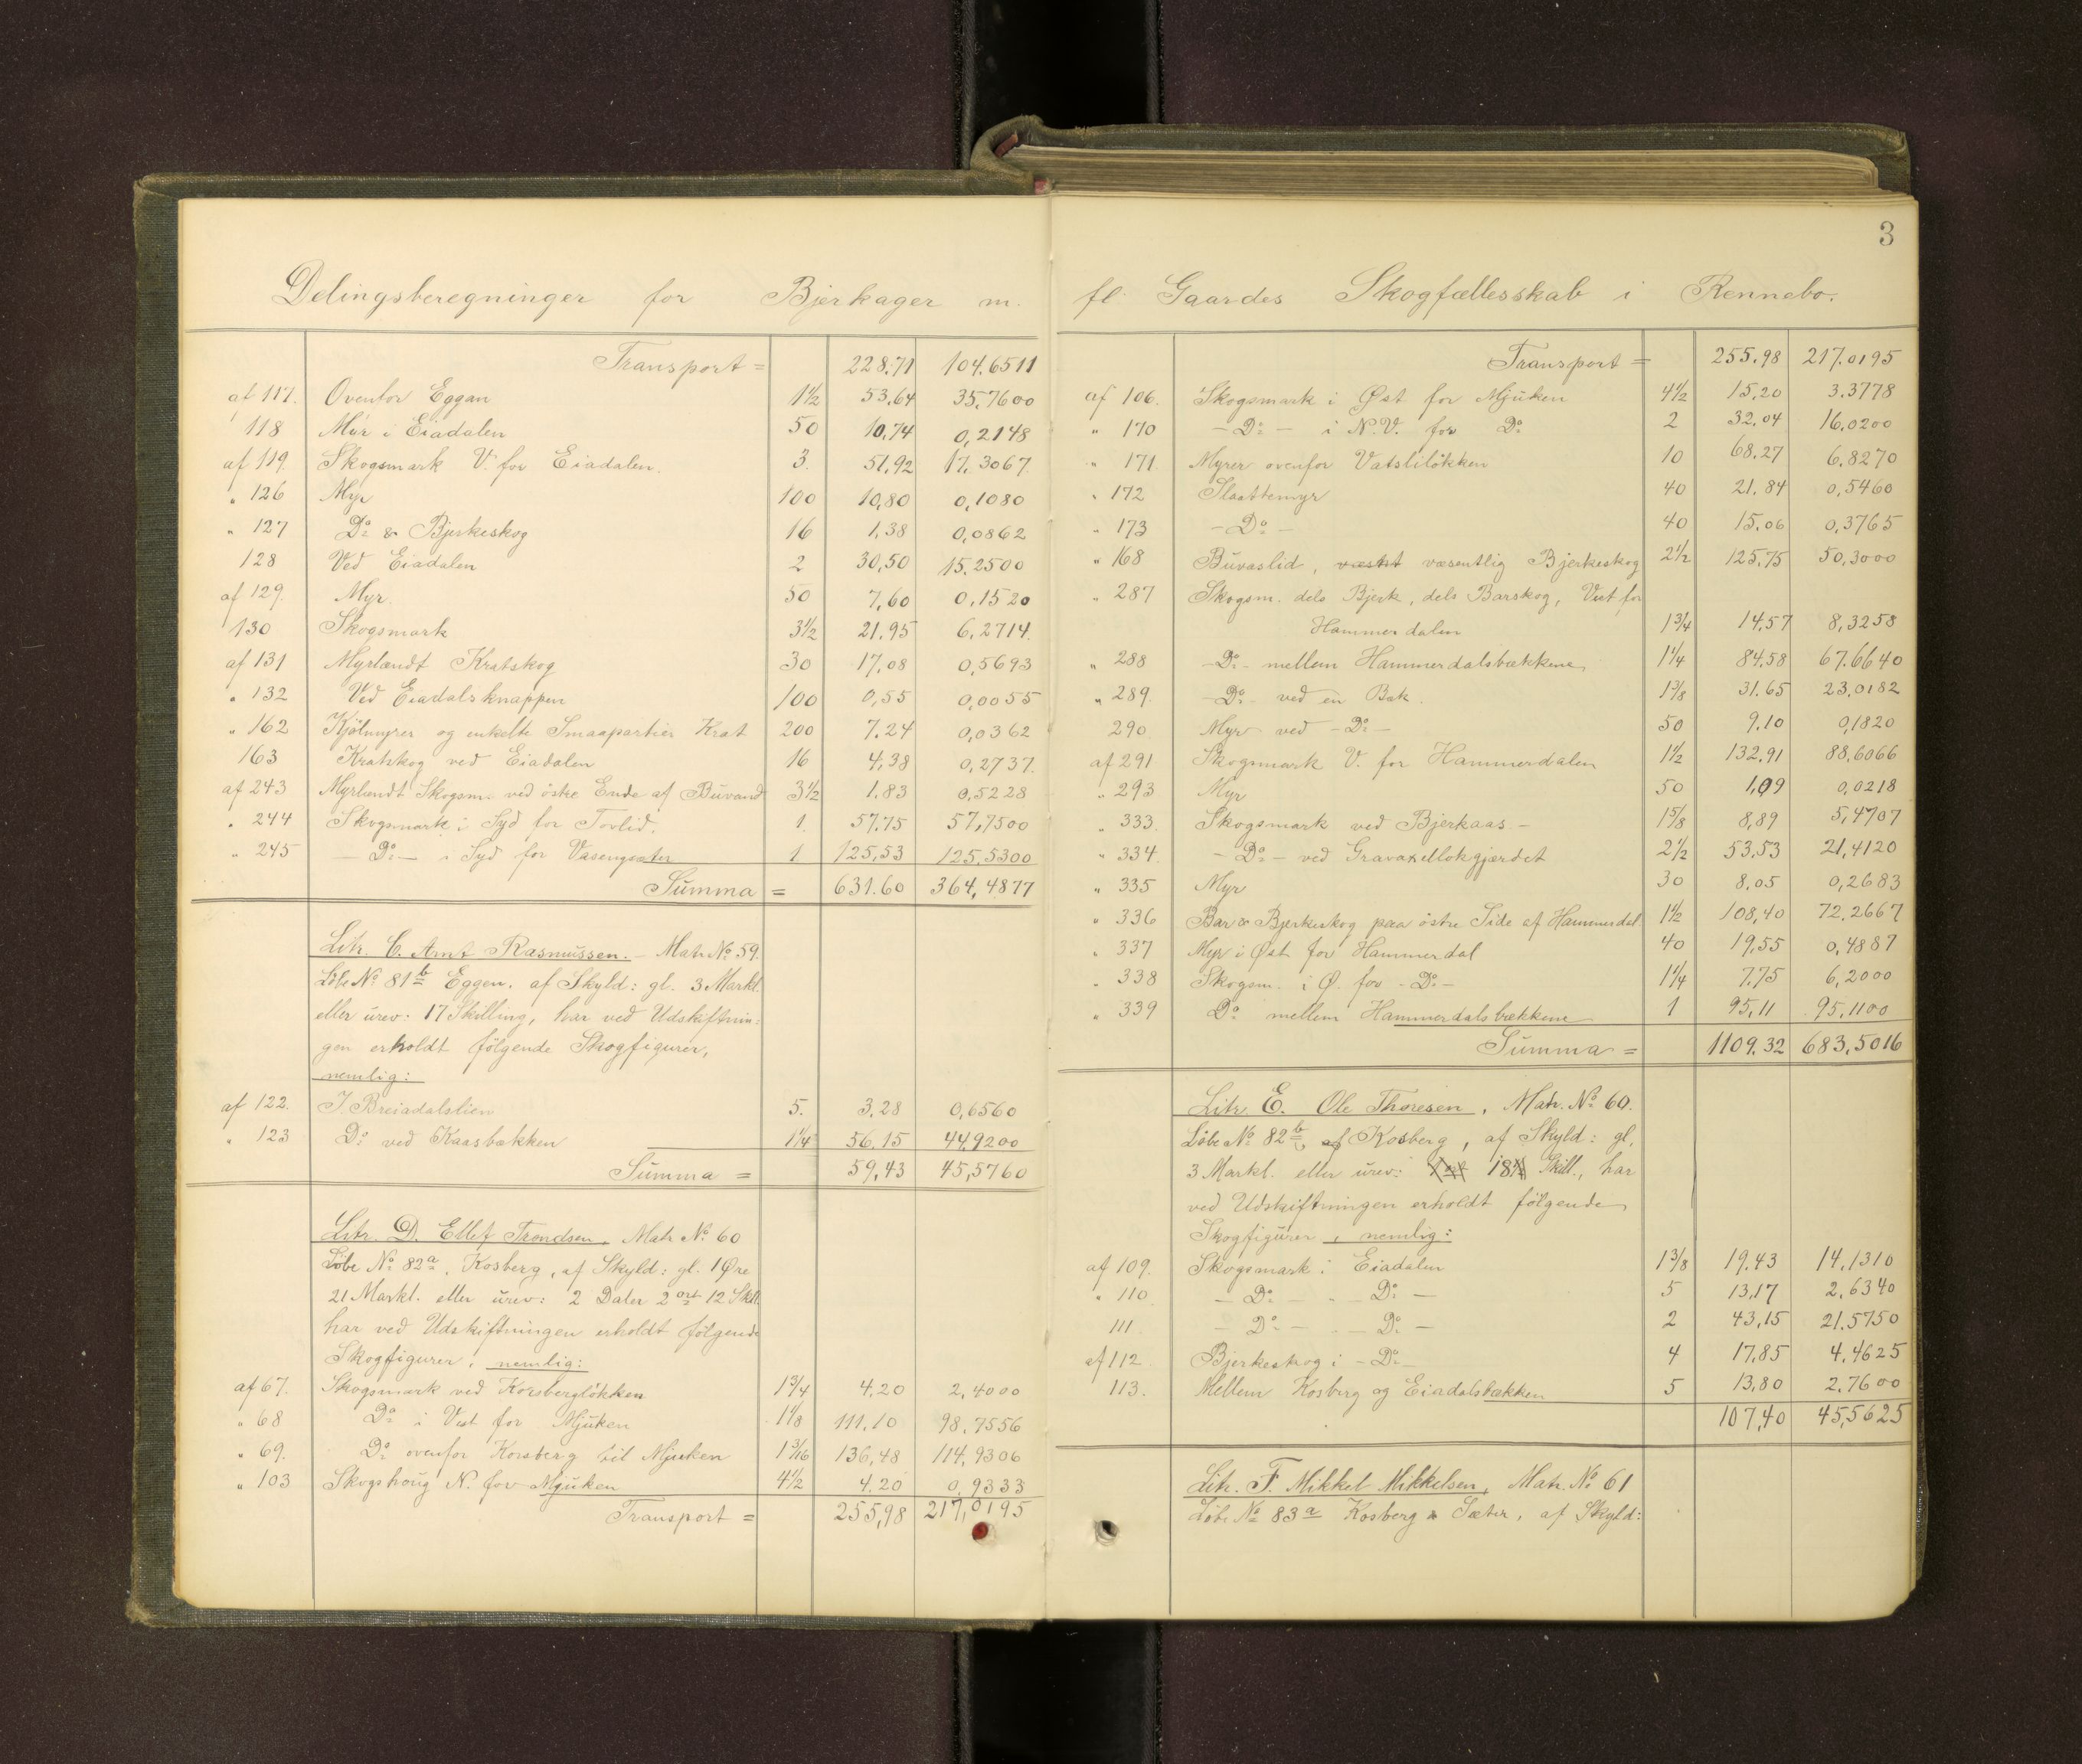 Delingsberegninger for Bjerkager m.
Transport = 228.71 104.6511
af 117. Ovenfor Eggan 1 1/2 53,64 35,7600
118 Myr i Eiadalen 50 10,74 0,2148
af 119. Skogsmark V. for Eiadalen. 3. 51,92 17,3067
" 126 Myr 100 10,80 0,1080
" 127 Do & Bjerkeskog 16 1,38 0,0862
128 Ved Eiadalen 2 30,50 15,2500
af 129. Myr. 50 7,60 0,1520
130 Skogsmark 3 1/2 21,95 6,2714
af 131 Myrlændt Kratskog 30 17,08 0,5693
" 132 Ved Eiadalsknappen 100 0,55 0,0055
" 162 Kjölmyrer og enkelte Smaapartier Krat 200 7.24 0,0362
163 Kratskog ved Eiadalen 16 4,38 0,2737.
af 243 Myrlændt Skogsm. ved östre Ende af Buvand 3 1/2 1.83 0,5228
" 244 Skogsmark i Syd for Tovlid. 1. 57.75 57,7500
" 245 — Do — i Syd for Vasengsæter 1 125,53 125,5300
Summa = 631.60 364,4877
Litr. C. Arnt Rasmussen. – Matr. No 59.
Löbe No 81 b Eggen. af Skyld: gl. 3 Markl.
eller urev: 17 Skilling, har ved Udskiftnin:
gen erholdt fölgende Skogfigurer,
nemlig:
af 122. I Breiadalslien 5. 3,28 0,6560
" 123 Do ved Kaasbækken 1 1/4 56.15 44,9200
Summa = 59,43 45,5760
Litr. D. Ellef Trondsen, Matr. No 60
Löbe No 82 a, Kosberg, af Skyld: gl. 1 Øre
21 Markl. eller urev: 2 Daler 2 ort 12 Skll.
har ved Udskiftningen erholdt fölgende
Skogfigurer, nemlig:
af 67. Skogsmark ved Korsberglökken 1 3/4 4,20 2,4000
" 68 Do i Vest for Mjuken 1 1/8 111.10 98,7556
" 69. Do ovenfor Korsberg til Mjuken 1 3/16 136,48 114,9306
" 103 Skogshoug N. for Mjuken 4 1/2 4.20 0,9333
Transport = 255,98 217,0195
3
fl. Gaardes Skogfællesskab i Rennebo.
Transport = 255.98 217.0195
af 106. Skogsmark i Øst for Mjuken 4 1/2 15,20 3.3778
" 170 — Do — i N.V. for Do 2 32,04 16,0200
" 171 Myrer ovenfor Vatslilökken 10 68,27 6.8270
" 172 Slaattemyr 40 21,84 0,5460
" 173 — Do — 40 15,06 0,3765
" 168 Buvaslid, væsent væsentlig Bjerkeskog 2 1/2 125,75 50,3000
" 287 Skogsm. dels Bjerk, dels Barskog, Vest for
Hammerdalen 1 3/4 14,57 8,3258
" 288 — Do – mellem Hammerdalsbækkene 1 1/4 84,58 67.6640
" 289. — Do – ved en Bæk. 1 3/8 31.65 23,0182
290. Myr ved — Do — 50 9.10 0,1820
af 291 Skogsmark V. for Hammerdalen 1 1/2 132,91 88,6066
" 293 Myr 50 1,09 0,0218
" 333. Skogsmark ved Bjerkaas – 1 5/8 8,89 5,4707
" 334. — Do — ved Gravaxellökgjærdet 2 1/2 53,53 21,4120
" 335 Myr 30 8,05 0,2683
" 336 Bar & Bjerkeskog paa östre Side af Hammerdal. 1 1/2 108,40 72,2667
" 337 Myr i Øst for Hammerdal 40 19,55 0,4887
" 338 Skogsm. i Ø. for - Do — 1 1/4 7.75 6,2000
" 339 Do mellem Hammerdalsbækkene 1 95,11 95,1100
Summa = 1109.32 683,5016
Litr. E. Ole Thoresen, Matr. No 60.
Löbe No 82 b, af Kosberg, af Skyld: gl.
3 Markl. eller urev: 18 Skill., har
ved Udskiftningen erholdt fölgende
Skogfigurer, nemlig:
af 109. Skogsmark i Eiadalen 1 3/8 19.43 14,1310
" 110 — Do — " — Do — 5 13,17 2,6340
111 — Do — " — Do — 2 43,15 21.5750
af 112 Bjerkeskog i — Do — 4 17,85 4,4625
113. Mellem Kosberg og Eiadalsbækken 5 13,80 2,7600
107,40 45,5625
Litr. F. Mikkel Mikkelsen, Matr. No 61
Löbe No 83 a Kosberg & Sæter, af Skyld: